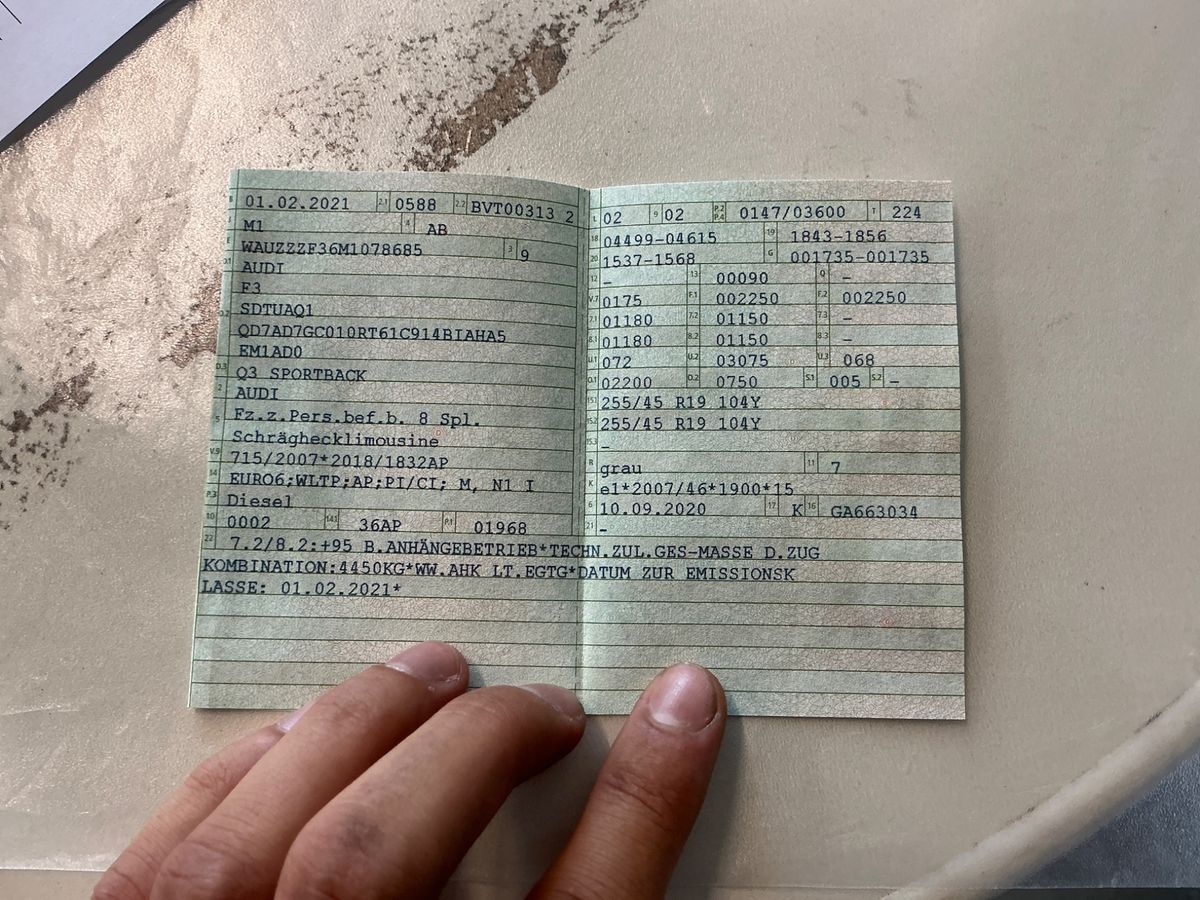 B 01.02.2021 2.1 0588 2.2 BVT00313 2
M1 4 AB
E WAUZZZF36M1078685 3 9
D.1 AUDI
F3
D.2 SDTUAQ1
QD7AD7GC010RT61C914BIAHA5
EM1AD0
D.3 Q3 SPORTBACK
2 AUDI
5 Fz.z.Pers.bef.b. 8 Spl.
Schräghecklimousine
V.9 715/2007*2018/1832AP
14 EURO6;WLTP;AP;PI/CI; M, N1 I
P.3 Diesel
10 0002 14.1 36AP P.1 01968
L 02 9 02 P.2 P.4 0147/03600 T 224
18 04499-04615 19 1843-1856
20 1537-1568 G 001735-001735
12 – 13 00090 Q –
V.7 0175 F.1 002250 F.2 002250
7.1 01180 7.2 01150 7.3 –
8.1 01180 8.2 01150 8.3 –
U.1 072 U.2 03075 U.3 068
O.1 02200 O.2 0750 S.1 005 S.2 –
15.1 255/45 R19 104Y
15.2 255/45 R19 104Y
15.3 –
R grau 11 7
K e1*2007/46*1900*15
6 10.09.2020 17 K 16 GA663034
21 –
22 7.2/8.2:+95 B.ANHÄNGEBETRIEB*TECHN.ZUL.GES-MASSE D.ZUG
KOMBINATION:4450KG*WW.AHK LT.EGTG*DATUM ZUR EMISSIONSK
LASSE: 01.02.2021*